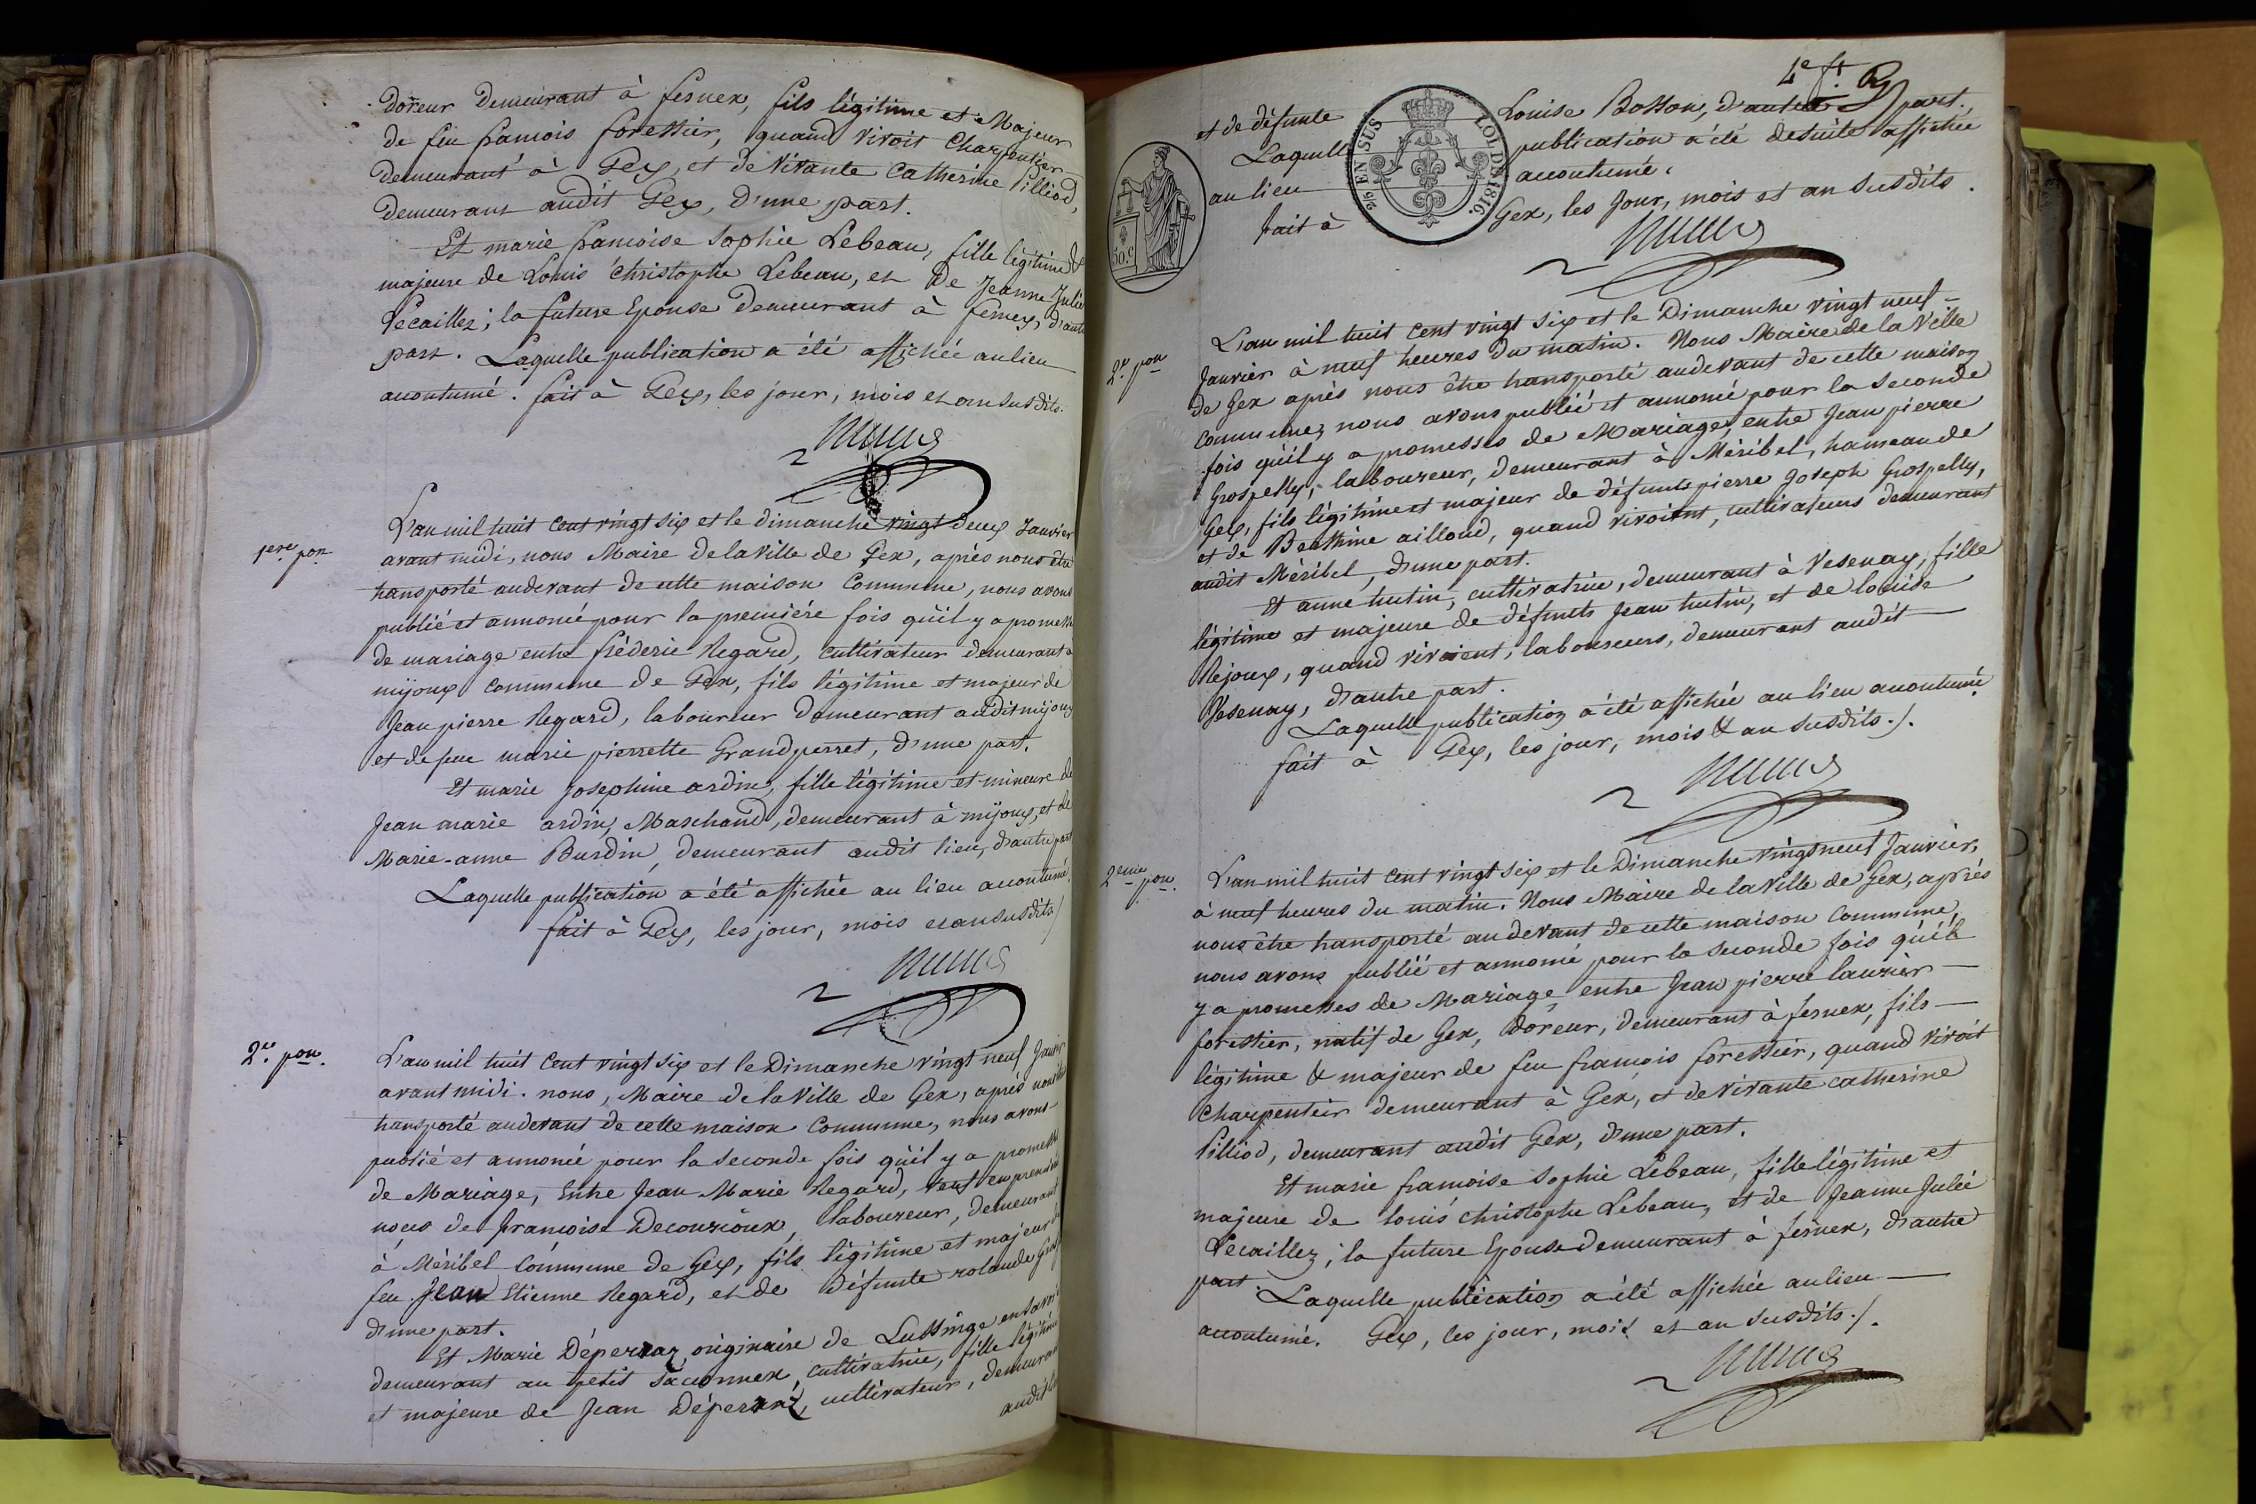 Doreur demeurant à fernex, fils légitime et Majeur
de feu francois forestier, quand vivoit Charpentier
demeurant à Gex, et de vivante Catherine Tilliod,
demeurant audit Gex, d'une part.
Et marie francoise Sophie Lebeau, fille légitime &
majeure de Louis Christophe Lebeau, et de Jeanne Julie
Lecaillez; la future Epouse demeurant à fernex, d'autre
part. Laquelle publication a été affichée au lieu
accoutumé. fait à Gex, les jour, mois et an susdits.
1ere pon.
L'an mil huit cent vingt six et le dimanche vingt deux Janvier
avant midi, nous Maire de la ville de Gex, après nous être
transporté audevant de cette maison Commune, nous avons
publié et annoncé pour la première fois qu'il y a promesse
de mariage entre fréderic Regard, cultivateur demeurant à
mijoux commune de Gex, fils légitime et majeur de
Jean pierre Regard, laboureur demeurant audit mijoux
et de feue marie pierrette Grandperret, d'une part.
Et marie Josephine ardin, fille légitime et mineure de
Jean marie ardin, Marchand, demeurant à mijoux, et de
Marie-anne Burdin, demeurant audit lieu, d'autre part
Laquelle publication a été affichée au lieu accoutumé.
fait à Gex, les jour, mois et an susdits /
2e. pon.
L'an mil huit cent vingt six et le Dimanche vingt neuf Janvier
avant midi. nous, Maire de la Ville de Gex, après nous être
transporté audevant de cette maison Commune, nous avons
publié et annoncé pour la seconde fois qu'il y a promesse
de Mariage, Entre Jean Marie Regard, veuf en premières
noces de francoise Decourioux, laboureur, demeurant
à Méribel Commune de Gex, fils légitime et majeur de
feu Jean Etienne Regard, et de défunte rolande
d'une part.
Et Marie Dépernaz, originaire de Lussinge en Savoie
demeurant au petit Saconnex, cultivatrice, fille légitime
et majeure de Jean Dépernaz, cultivateur, demeurant
audit lieu
4e ft.
et de défunte Louise Bosson, d'autre part.
Laquelle publication a été de suite affichée
au lieu accoutumé.
fait à Gex, les Jour, mois et an susdits.
EN SUS
LOI DE 1816.
50.C
2e. pon
L'an mil huit cent vingt six et le Dimanche vingt neuf
Janvier à neuf heures du matin. Nous Maire de la Ville
de Gex après nous être transporté audevant de cette maison
commune, nous avons publié et annoncé pour la seconde
fois qu'il y a promesses de Mariage, entre Jean pierre
Grospelly, laboureur, demeurant à Méribel, hameau de
Gex, fils légitime et majeur de défunts pierre Joseph Grospelly,
et de Benthine aillod, quand vivoient, cultivateurs demeurant
audit Méribel, d'une part.
Et anne hutin, cultivatrice, demeurant à Vesenay, fille
légitime et majeure de défunts Jean hutin, et de louise
Rejoux, quand vivoient, laboureurs, demeurant audit
Vesenay, d'autre part.
Laquelle publication a été affichée au lieu accoutumé
fait à Gex, les jour, mois & an susdits./.
2eme pon.
L'an mil huit cent vingt six et le Dimanche vingt neuf Janvier,
à neuf heures du matin. Nous Maire de la Ville de Gex, après
nous être transporté audevant de cette maison commune,
nous avons publié et annoncé pour la seconde fois qu'il
y a promesses de Mariage entre Jean pierre laurier
forestier, natif de Gex, doreur, demeurant à fernex, fils
légitime & majeur de feu francois forestier, quand vivoit
charpentier demeurant à Gex, et de vivante catherine
Tilliod, demeurant audit Gex, d'une part.
Et marie francoise Sophie Lebeau, fille légitime et
majeure de louis Christophe Lebeau, et de Jeanne Julie
Lecaillez; la future Epouse demeurant à fernex, d'autre
part
Laquelle publication a été affichée au lieu
accoutumé. Gex, les jour, mois et an susdits./.